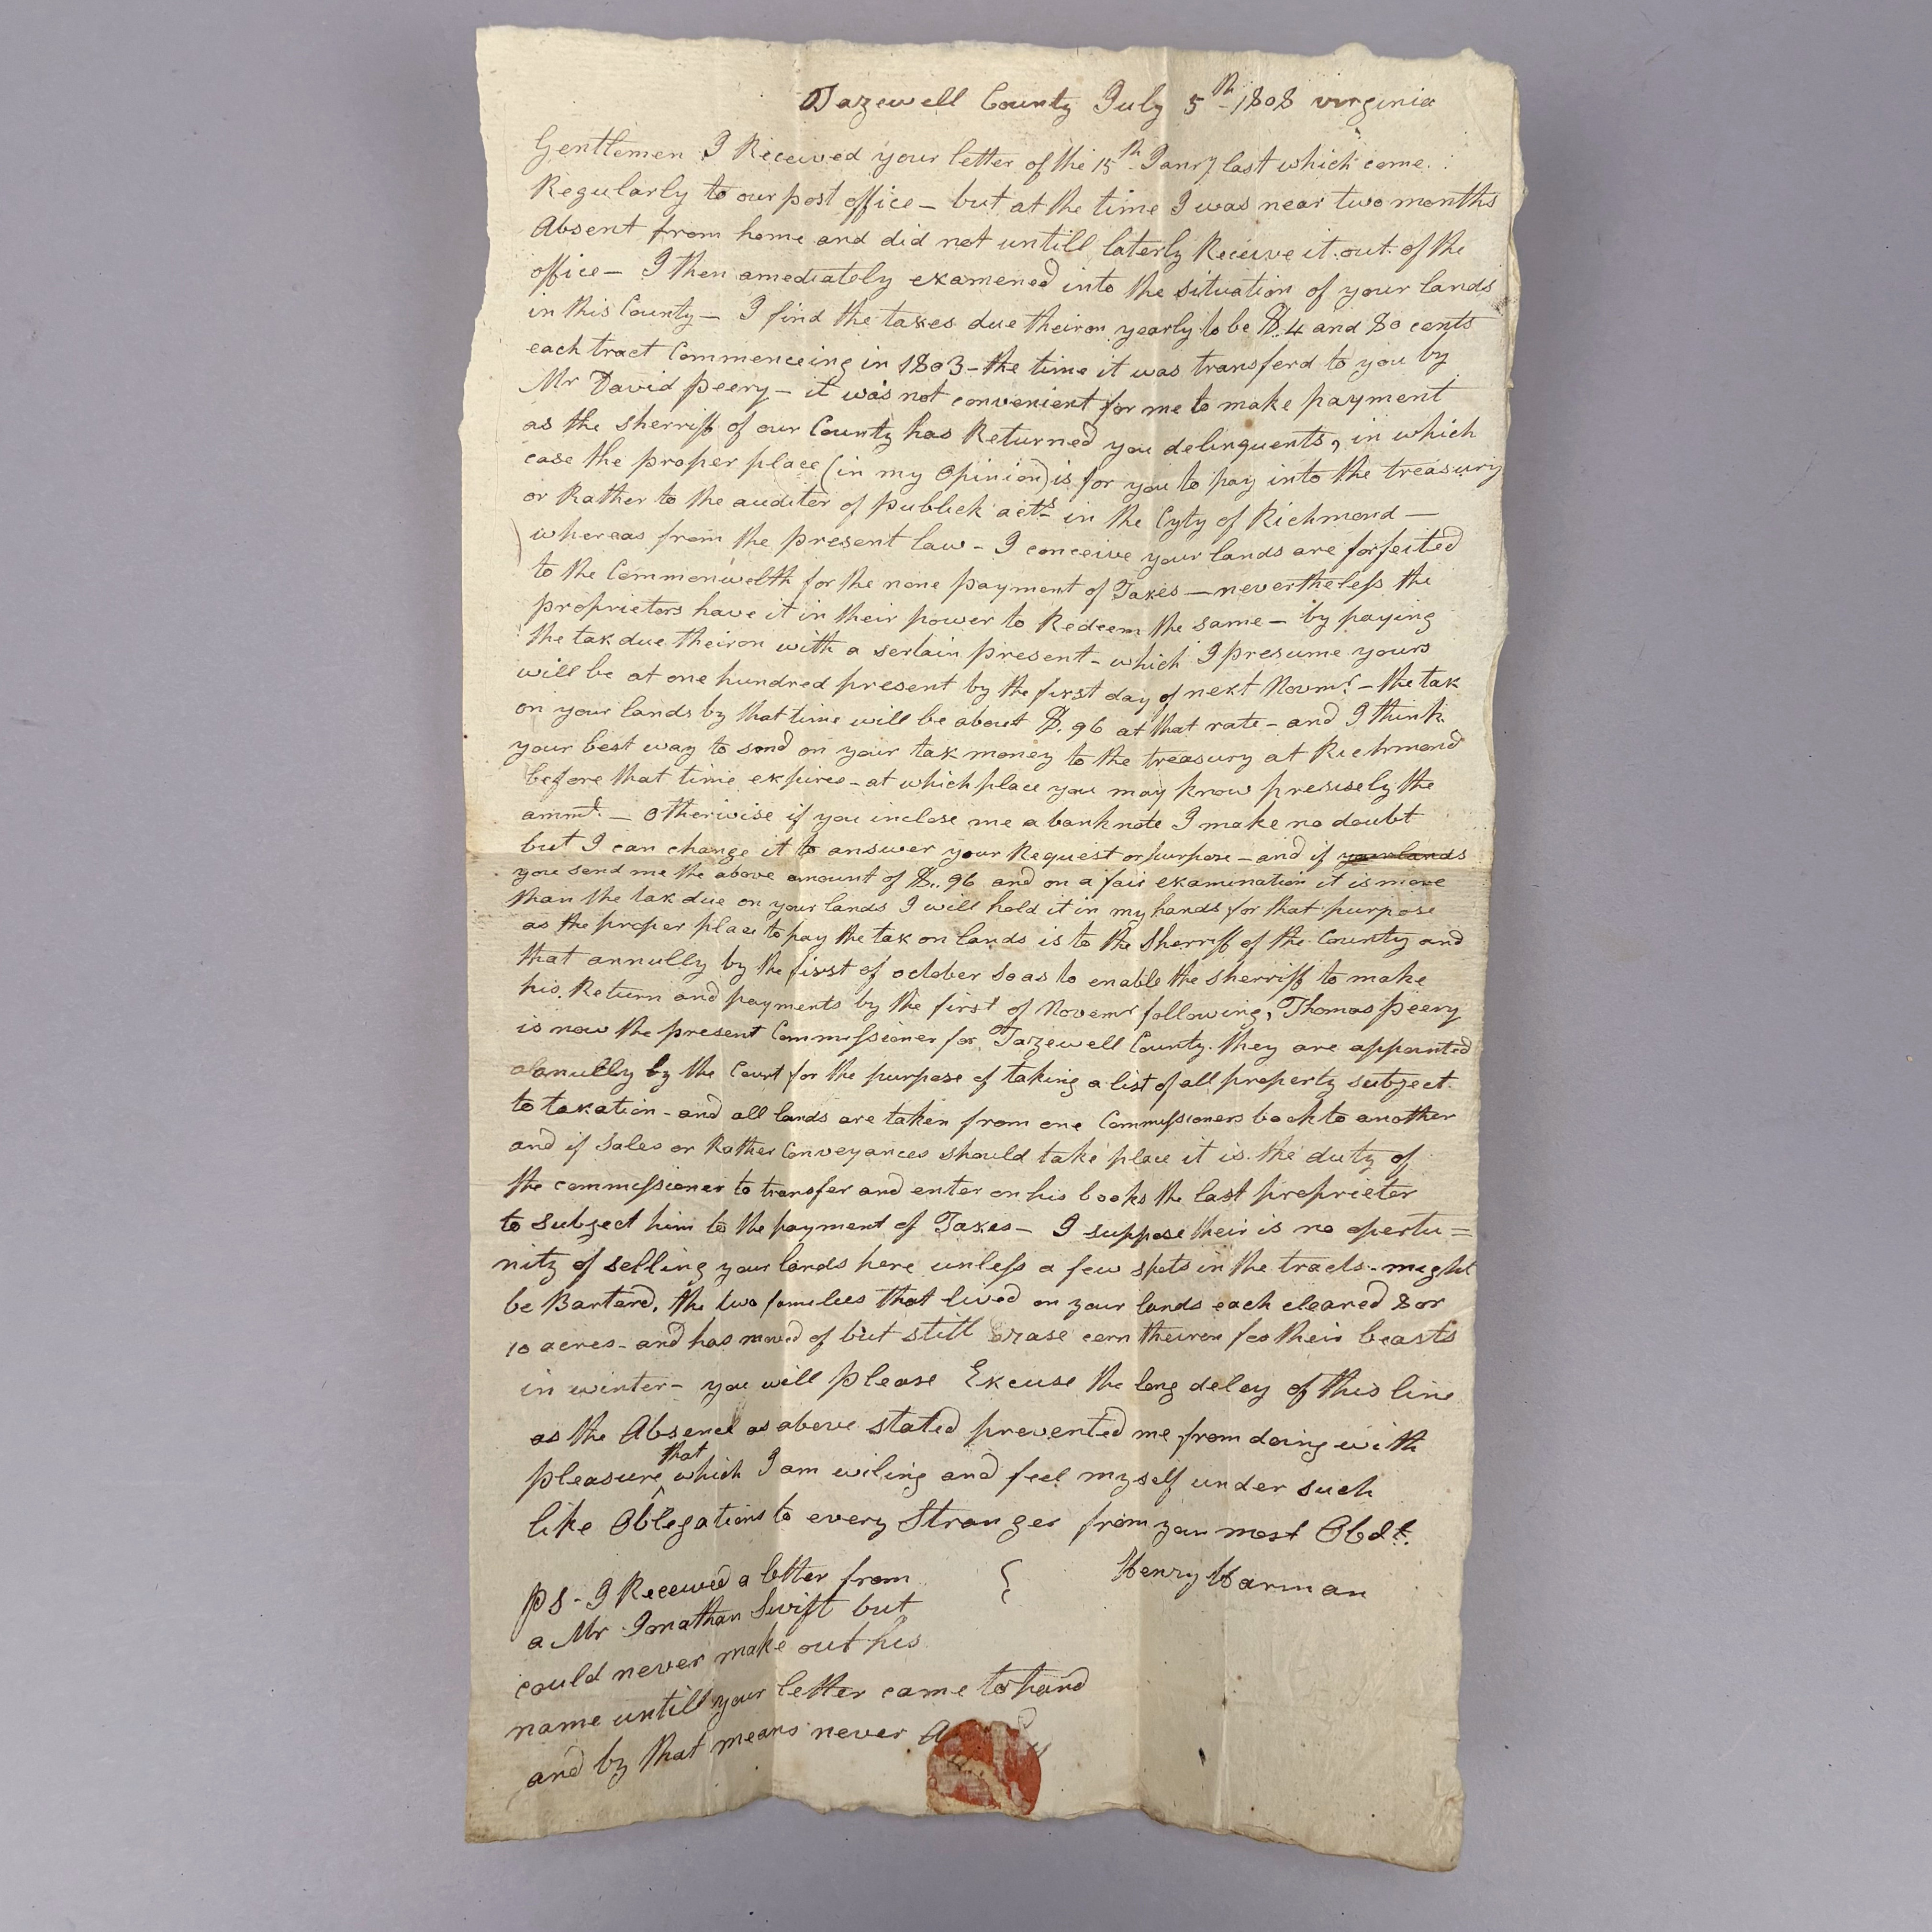 Tazewell County July 5th 1808 virginia
Gentlemen I Received your letter of the 15th Janry last which come
Regularly to our post office - but at the time I was near two months
Absent from home and did not untill laterly Receive it out of the
office - I then amediately examened into the situation of your lands
in this County - I find the taxes due theiron yearly to be $.4 and 80 cents
each tract Commenceing in 1803 - the time it was transferd to you by
Mr David peery - it was not convenient for me to make payment
as the sherriff of our County has Returned you delinquents, in which
case the proper place (in my Opinion) is for you to pay into the treasury
or Rather to the auditer of publick acts in the Cyty of Richmond -
whereas from the present law - I conceive your lands are forfeited
to the Commonwelth for the none payment of Taxes - nevertheless the
proprietors have it in their power to Redeem the same - by paying
the tax due theiron with a sertain present - which I presume yours
will be at one hundred present by the first day of next Novmr - the tax
on your lands by that time will be about $. 96 at that rate - and I think
your best way to send on your tax money to the treasury at Richmond
before that time expires - at which place you may know presisely the
ammt - Otherwise if you inclose me a bank note I make no doubt
but I can change it to answer your Request or purpose - and if your lands
you send me the above amount of $.. 96 and on a fair examination it is more
than the tax due on your lands I will hold it in my hands for that purpose
as the proper place to pay the tax on lands is to the Sherriff of the County and
that annully by the first of october so as to enable the sherriff to make
his Return and payments by the first of Novemr following, Thomas peery
is now the present Commissioner for Tazewell County. they are appointed
anully by the Court for the purpose of taking a list of all property subject
to taxation - and all lands are taken from one Commissioners book to another
and if Sales or Rather Conveyances should take place it is the duty of
the commissioner to transfer and enter on his books the last proprieter
to subject him to the payment of Taxes - I suppose their is no opertu=
nity of selling your lands here unless a few spots in the tracts - might
be Barterd, the two families that lived on your lands each cleared 8 or
10 acres - and has moved of but still rase corn theiron for their beasts
in winter - you will please Excuse the long delay of this line
as the Absence as above stated prevented me from doing with
pleasure that which I am wiling and feel myself under such
like Oblegations to every Stranger from your most Obdt.
Henry Harman
ps - I Received a letter from
a Mr Jonathan Swift but
could never make out his
name untill your letter came to hand
and by that means never